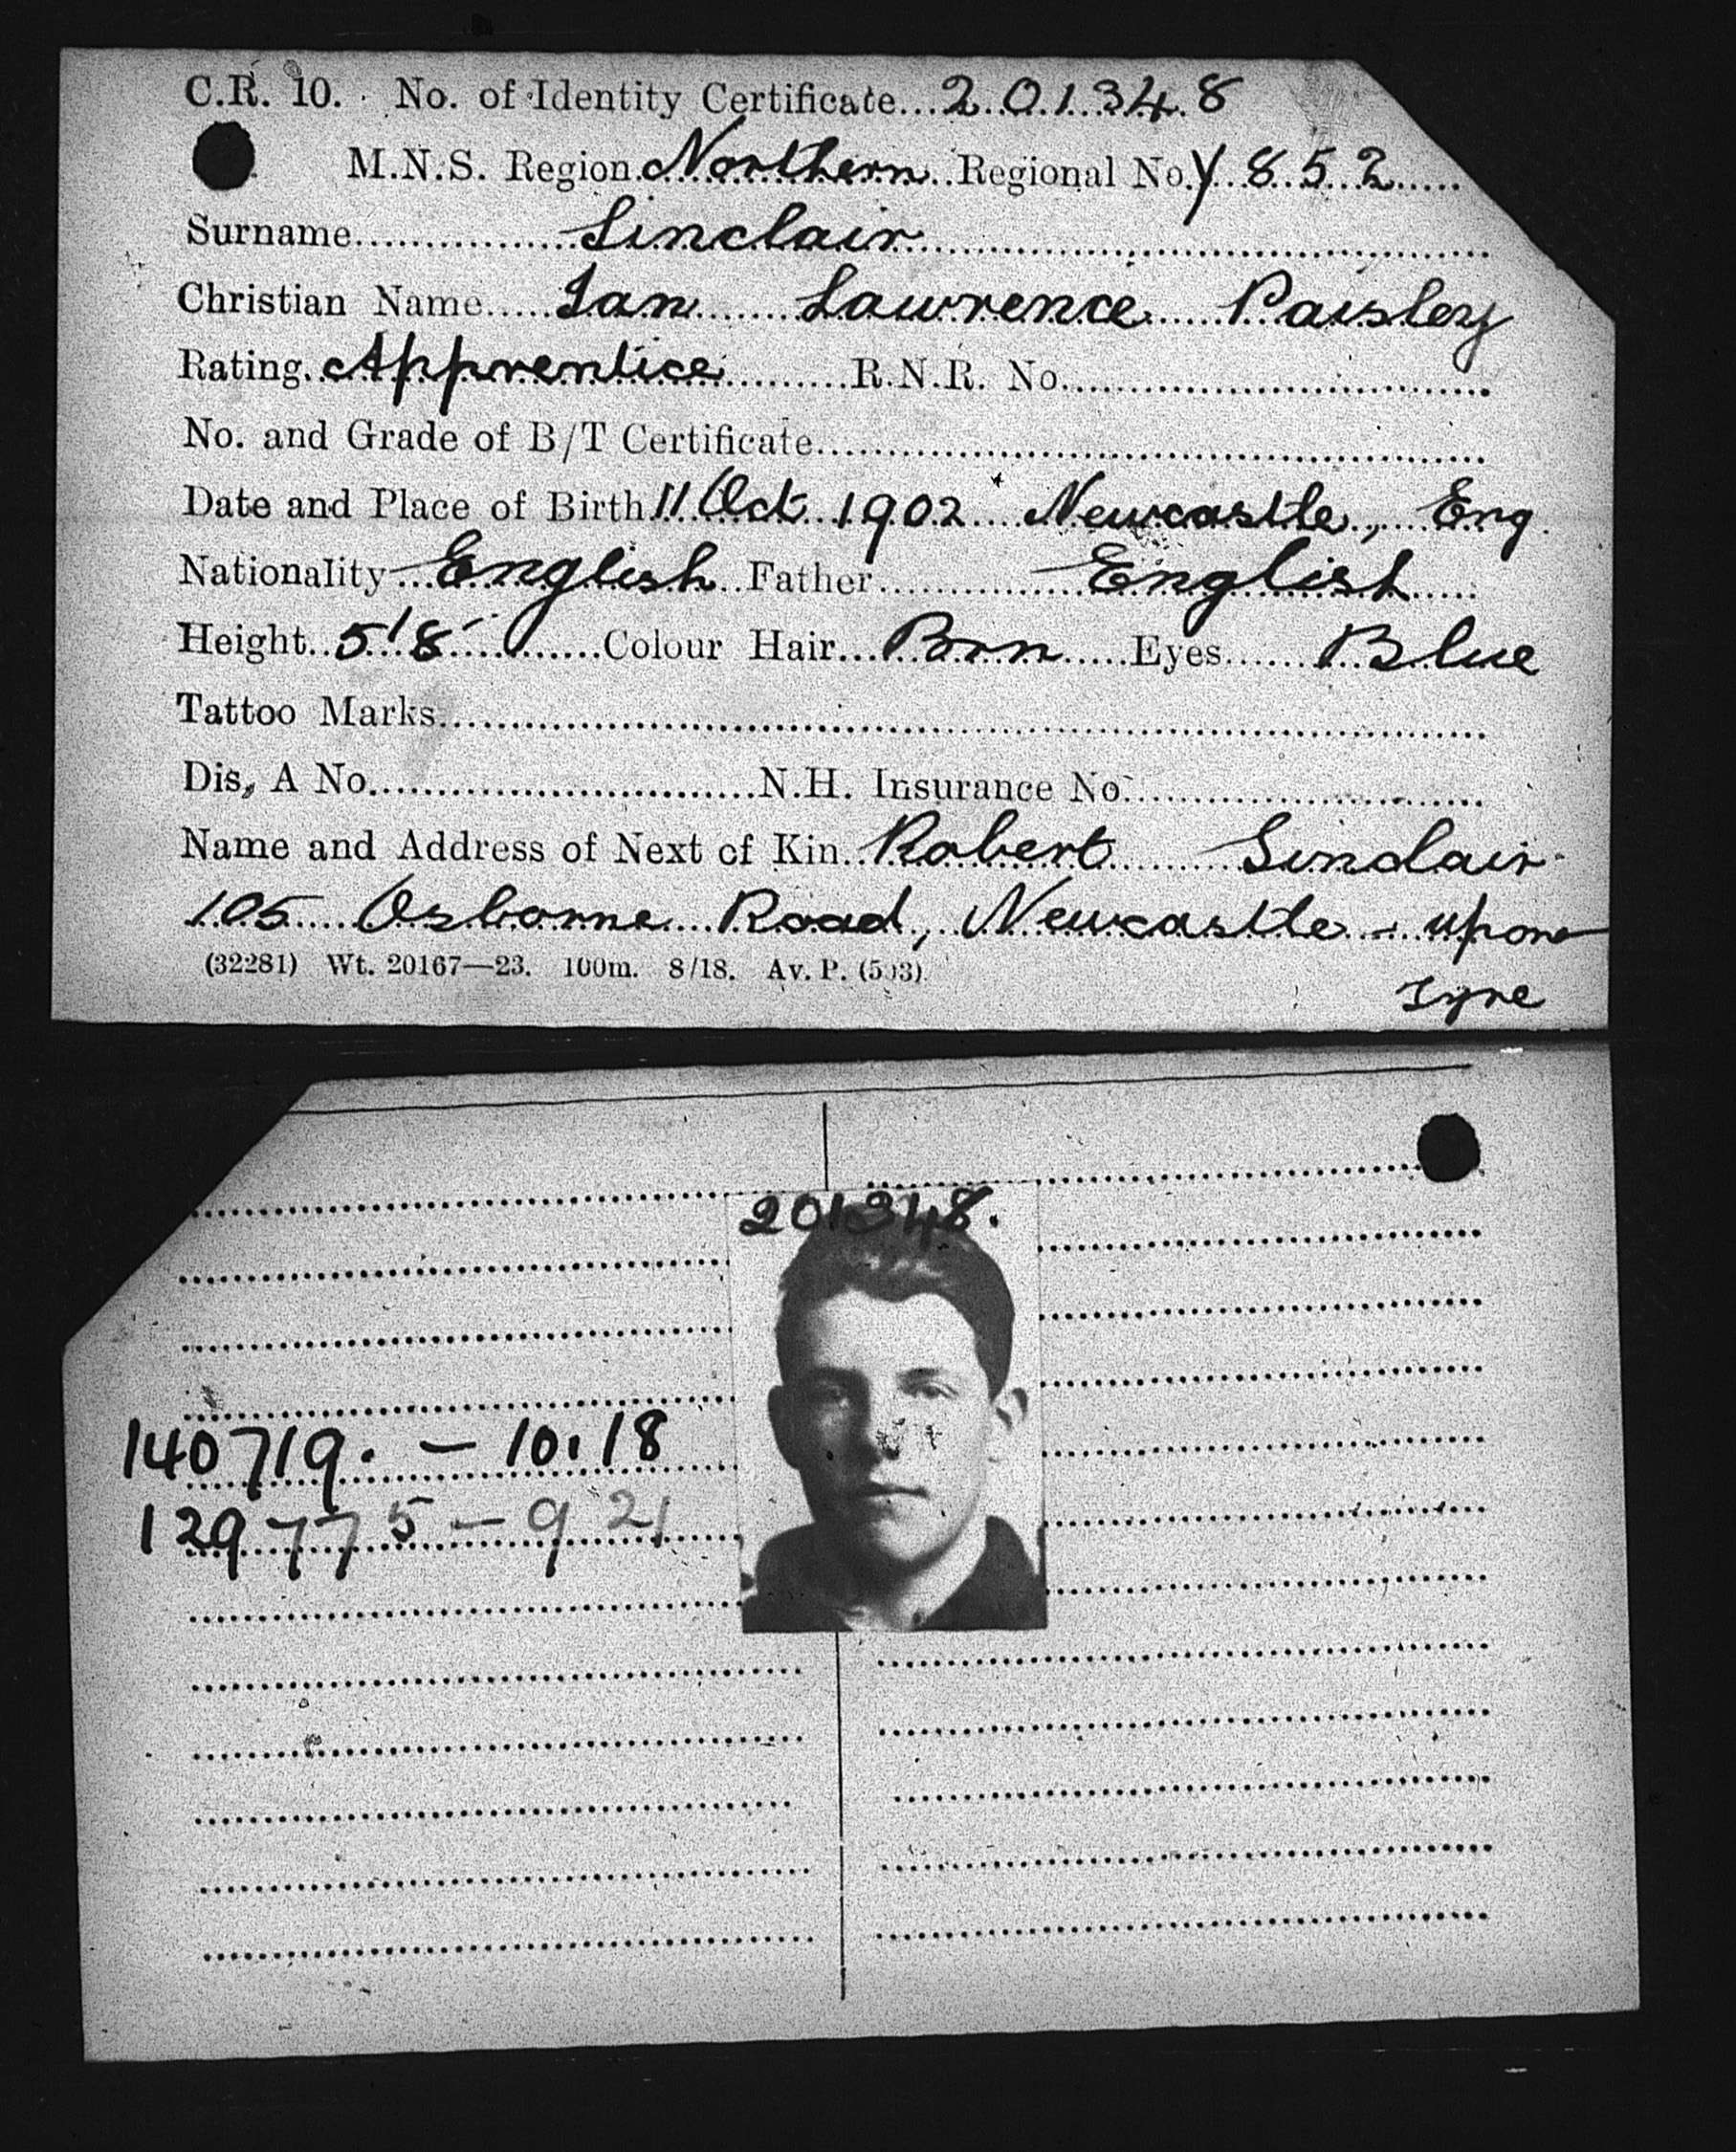 C.R. 10. No. of Identity Certificate...201348
M.N.S. Region Northern Regional No. Y852
Surname Sinclair
Christian Name Ian Lawrence Paisley
Rating. Apprentice R.N.R. No.
No. and Grade of B/T Certificate
Date and Place of Birth 11 Oct 1902 Newcastle, Eng.
Nationality English Father English
Height 5'8" Colour Hair Brn Eyes Blue
Tattoo Marks
Dis, A No. N.H. Insurance No.
Name and Address of Next of Kin Robert Sinclair
105 Osborne Road, Newcastle - upon
Tyne
(32281) Wt. 20167—23. 100m. 8/18. Av. P. (503)
201348.
140719. - 10.18
129775 - 9 21